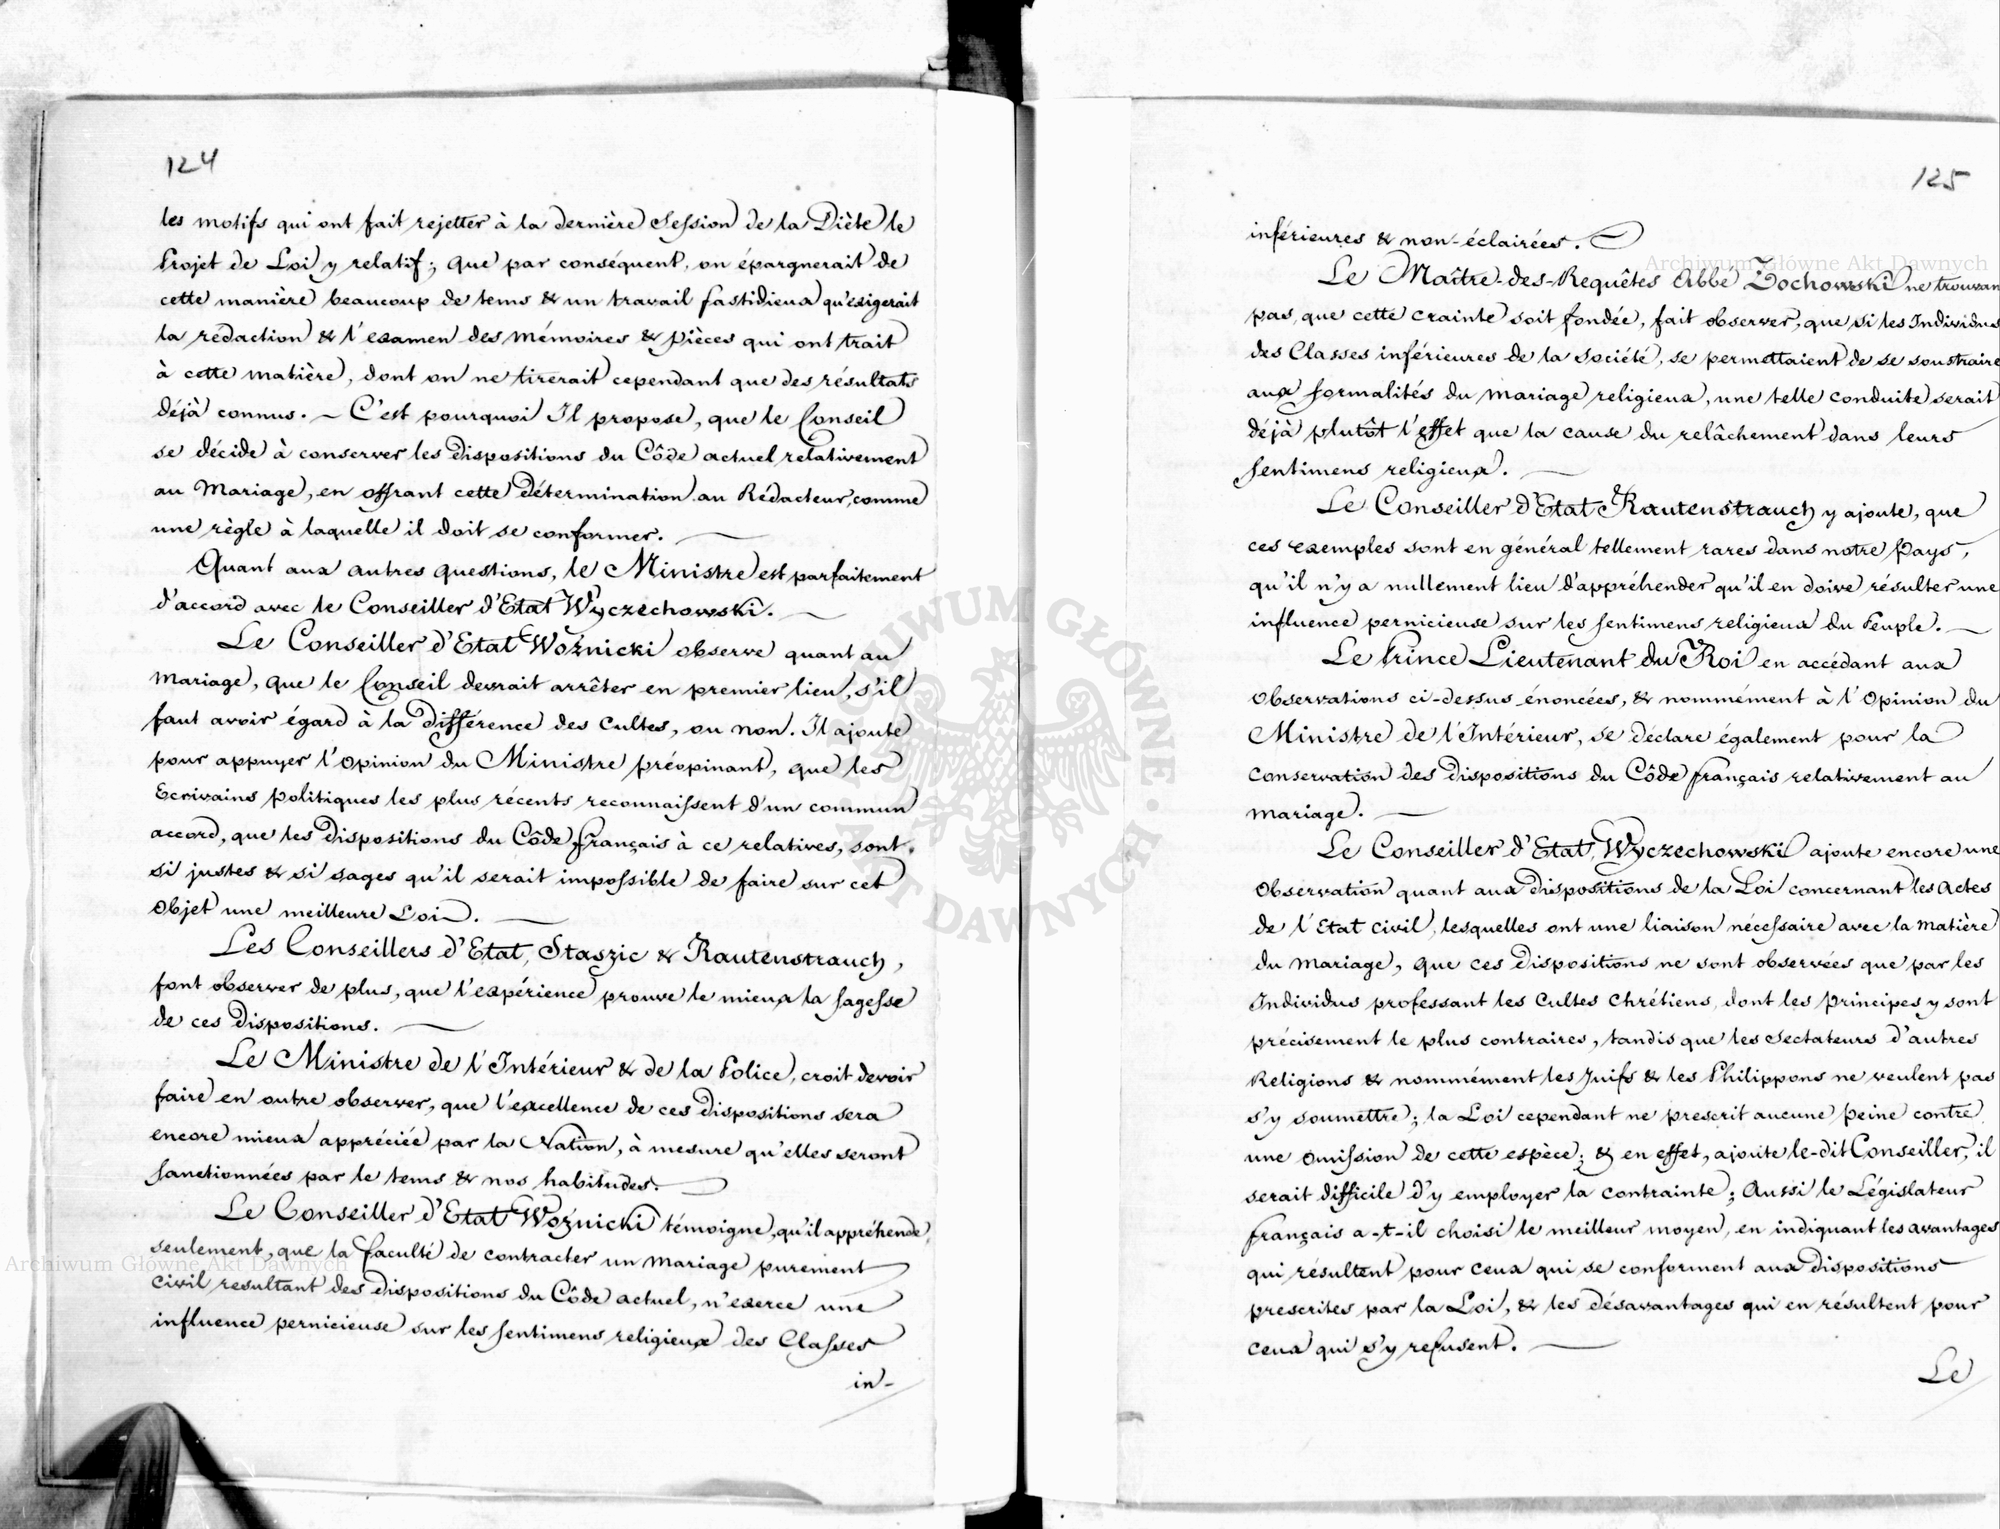 124
les motifs qui ont fait rejetter à la dernière Session de la Diète le
Projet de Loi y relatif; que par conséquent, on épargnerait de
cette manière beaucoup de tems & un travail fastidieux qu'exigerait
la rédaction & l'examen des mémoires & pièces qui ont trait
à cette matière, dont on ne tirerait cependant que des résultats
déjà connus. — C'est pourquoi Il propose, que le Conseil
se décide à conserver les dispositions du Côde actuel relativement
au Mariage, en offrant cette détermination au Rédacteur, comme
une règle à laquelle il doit se conformer.
Quant aux autres questions, le Ministre est parfaitement
d'accord avec le Conseiller d'Etat Wyczechowski.
Le Conseiller d'Etat Woźnicki observe quant au
Mariage, que le Conseil devrait arrêter en premier lieu, s'il
faut avoir égard à la différence des Cultes, ou non. Il ajoute
pour appuyer l'opinion du Ministre préopinant, que les
Ecrivains politiques les plus récents reconnaissent d'un commun
accord, que les dispositions du Côde français à ce relatives, sont
si justes & si sages qu'il serait impossible de faire sur cet
objet une meilleure Loi.
Les Conseillers d'Etat, Staszic & Rautenstrauch,
font observer de plus, que l'expérience prouve le mieux la sagesse
de ces dispositions.
Le Ministre de l'Intérieur & de la Police, croit devoir
faire en outre observer, que l'excellence de ces dispositions sera
encore mieux appréciée par la Nation, à mesure qu'elles seront
sanctionnées par le tems & nos habitudes.
Le Conseiller d'Etat Woźnicki témoigne, qu'il appréhende
seulement, que la faculté de contracter un mariage purement
civil resultant des dispositions du Côde actuel, n'exerce une
influence pernicieuse sur les sentimens religieux des Classes
in-
125
inférieures & non-éclairées.
Le Maître-des-Requêtes Abbé Zochowski ne trouvan
pas, que cette crainte soit fondée, fait observer, que si les Individus
des Classes inférieures de la société, se permettaient de se soustraire
aux formalités du mariage religieux, une telle conduite serait
déjà plutôt l'effet que la cause du relâchement dans leurs
sentimens religieux.
Le Conseiller d'Etat Rautenstrauch y ajoute, que
ces exemples sont en général tellement rares dans notre Pays,
qu'il n'y a nullement lieu d'appréhender qu'il en doive résulter une
influence pernicieuse sur les sentimens religieux du Peuple.
Le Prince Lieutenant du Roi en accédant aux
observations ci-dessus énoncées, & nommément à l'opinion du
Ministre de l'Intérieur, se déclare également pour la
conservation des dispositions du Côde français relativement au
mariage.
Le Conseiller d'Etat, Wyczechowski ajoute encore une
observation quant aux dispositions de la Loi concernant les actes
de l'Etat civil, lesquelles ont une liaison nécessaire avec la matière
du Mariage, que ces dispositions ne sont observées que par les
Individus professant les Cultes Chrétiens, dont les principes y sont
précisement le plus contraires, tandis que les sectateurs d'autres
Religions & nommément les Juifs & les Philippons ne veulent pas
s'y soumettre; la Loi cependant ne prescrit aucune peine contre
une omission de cette espèce; & en effet, ajoute le-dit Conseiller, il
serait difficile d'y employer la contrainte; Aussi le Législateur
français a-t-il choisi le meilleur moyen, en indiquant les avantages
qui résultent pour ceux qui se conforment aux dispositions
prescrites par la Loi, & les désavantages qui en résultent pour
ceux qui s'y refusent.
Le
Archiwum Główne Akt Dawnych
Archiwum Główne Akt Dawnych
ARCHIWUM GŁÓWNE · AKT DAWNYCH ·